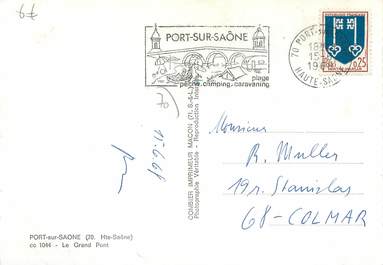 6€
PORT-SUR-SAÔNE
plage
pêche. camping. caravaning
70 PORT-SUR-
18
15-
19
HAUTE-SAÔNE
0,25
COMBIER IMPRIMEUR MACON (71. S.-&-L.)
Photographie Véritable - Reproduction Inter
15.6.68
Monsieur
R. Muller
19 r. Stanislas
68-COLMAR
PORT-sur-SAONE (70. Hte-Saône)
co 1044 - Le Grand Pont